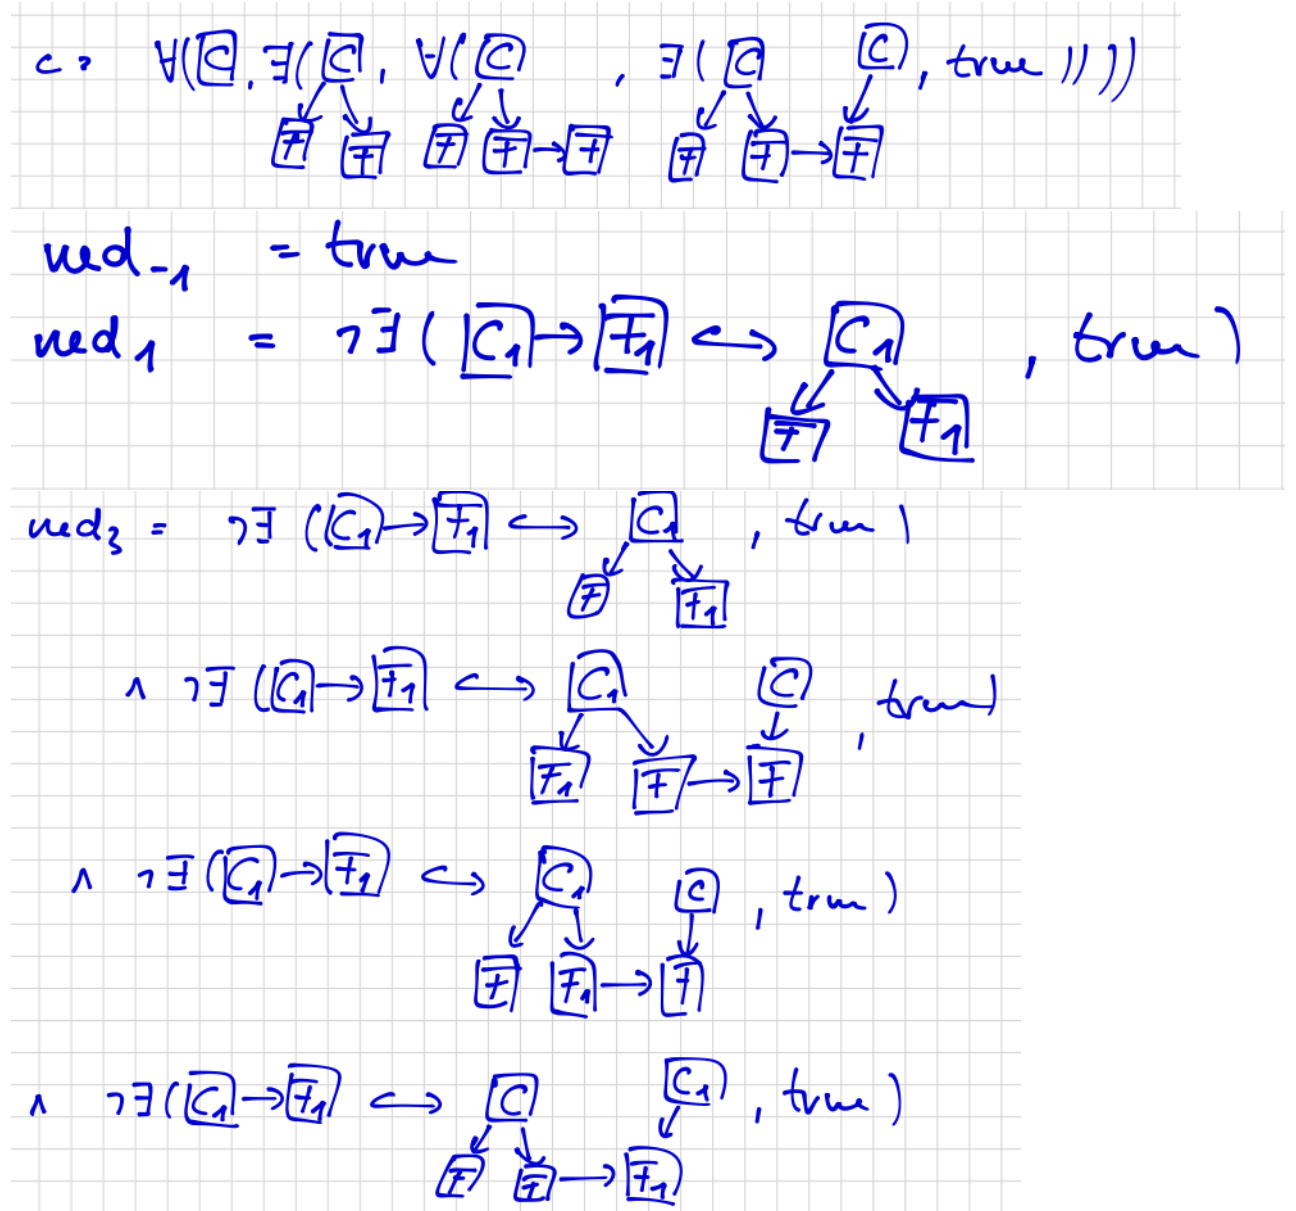 c = ∀(C, ∃(C, ∀(C, ∃(C C, true))))
F F F F → F F F → F
ned₋₁ = true
ned₁ = ¬∃(C₁ → F₁ ↪ C₁, true)
F F₁
ned₃ = ¬∃(C₁ → F₁ ↪ C₁, true)
F F₁
∧ ¬∃(C₁ → F₁ ↪ C₁ C, true)
F₁ F → F
∧ ¬∃(C₁ → F₁ ↪ C₁ C, true)
F F₁ → F
∧ ¬∃(C₁ → F₁ ↪ C C₁, true)
F F → F₁